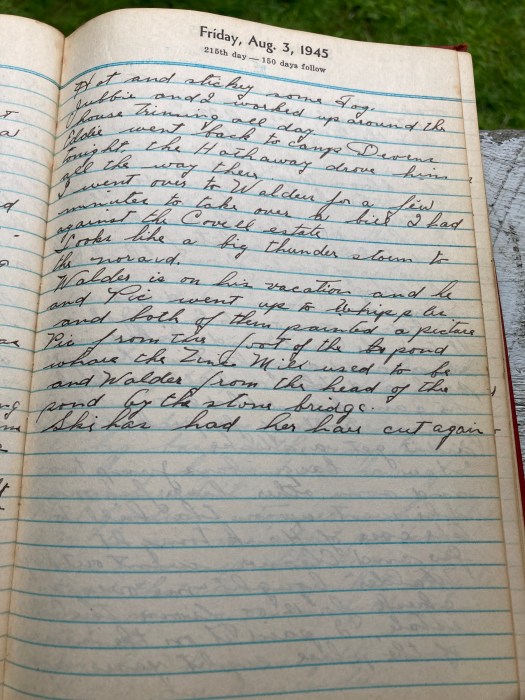 Friday, Aug. 3, 1945
215th day — 150 days follow
Hot and stickey some Fog.
Jubbie and I worked up around the
house Triming all day
Eddie went back to camp Devens
tonight the Hathaway drove him
all the way there
I went over to Walders for a few
minutes to take over a bill I had
against the Covell estate
Looks like a big thunder storm to
the norard.
Walder is on his vacation and he
and Pic went up to
and both of them painted a picture
Pic from the foot of the pond
whare the Mill used to be
and Walder from the head of the
pond by the stone bridge.
Ski has had her hair cut again